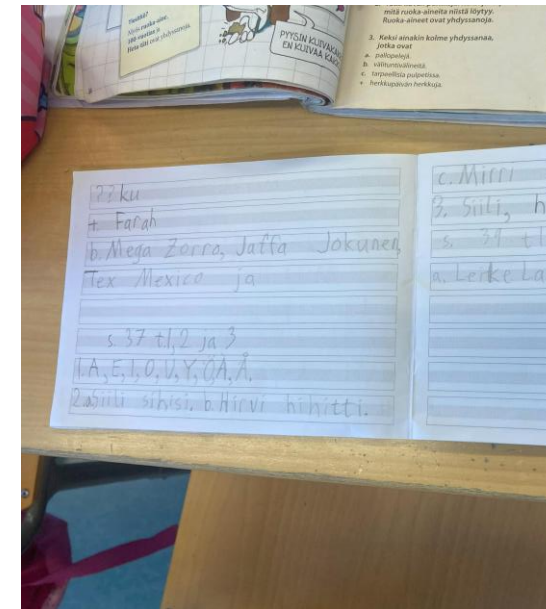 Tiesitkö?
Myös ruoka-aine,
ovat yhdyssanoja.
PYYSIN KUIVAKA
EN KUIVAA KAK
mitä ruoka-aineita niistä löytyy.
Ruoka-aineet ovat yhdyssanoja.
3. Keksi ainakin kolme yhdyssanaa,
jotka ovat
a. pallopelejä.
b. välituntivälineitä.
c. tarpeellisia pulpetissa.
+ herkkupäivän herkkuja.
??ku
+ Farah
b. Mega Zorro, Jaffa Jokunen,
Tex Mexico ja
s. 37 t.1, 2 ja 3
1. A, E, I, O, U, Y, Ö, Ä, Å.
2. a Siili sihisi. b. Hirvi hihitti.
c. Mirri
3. Siili, h
s. 39 t.1
a. Lerke La